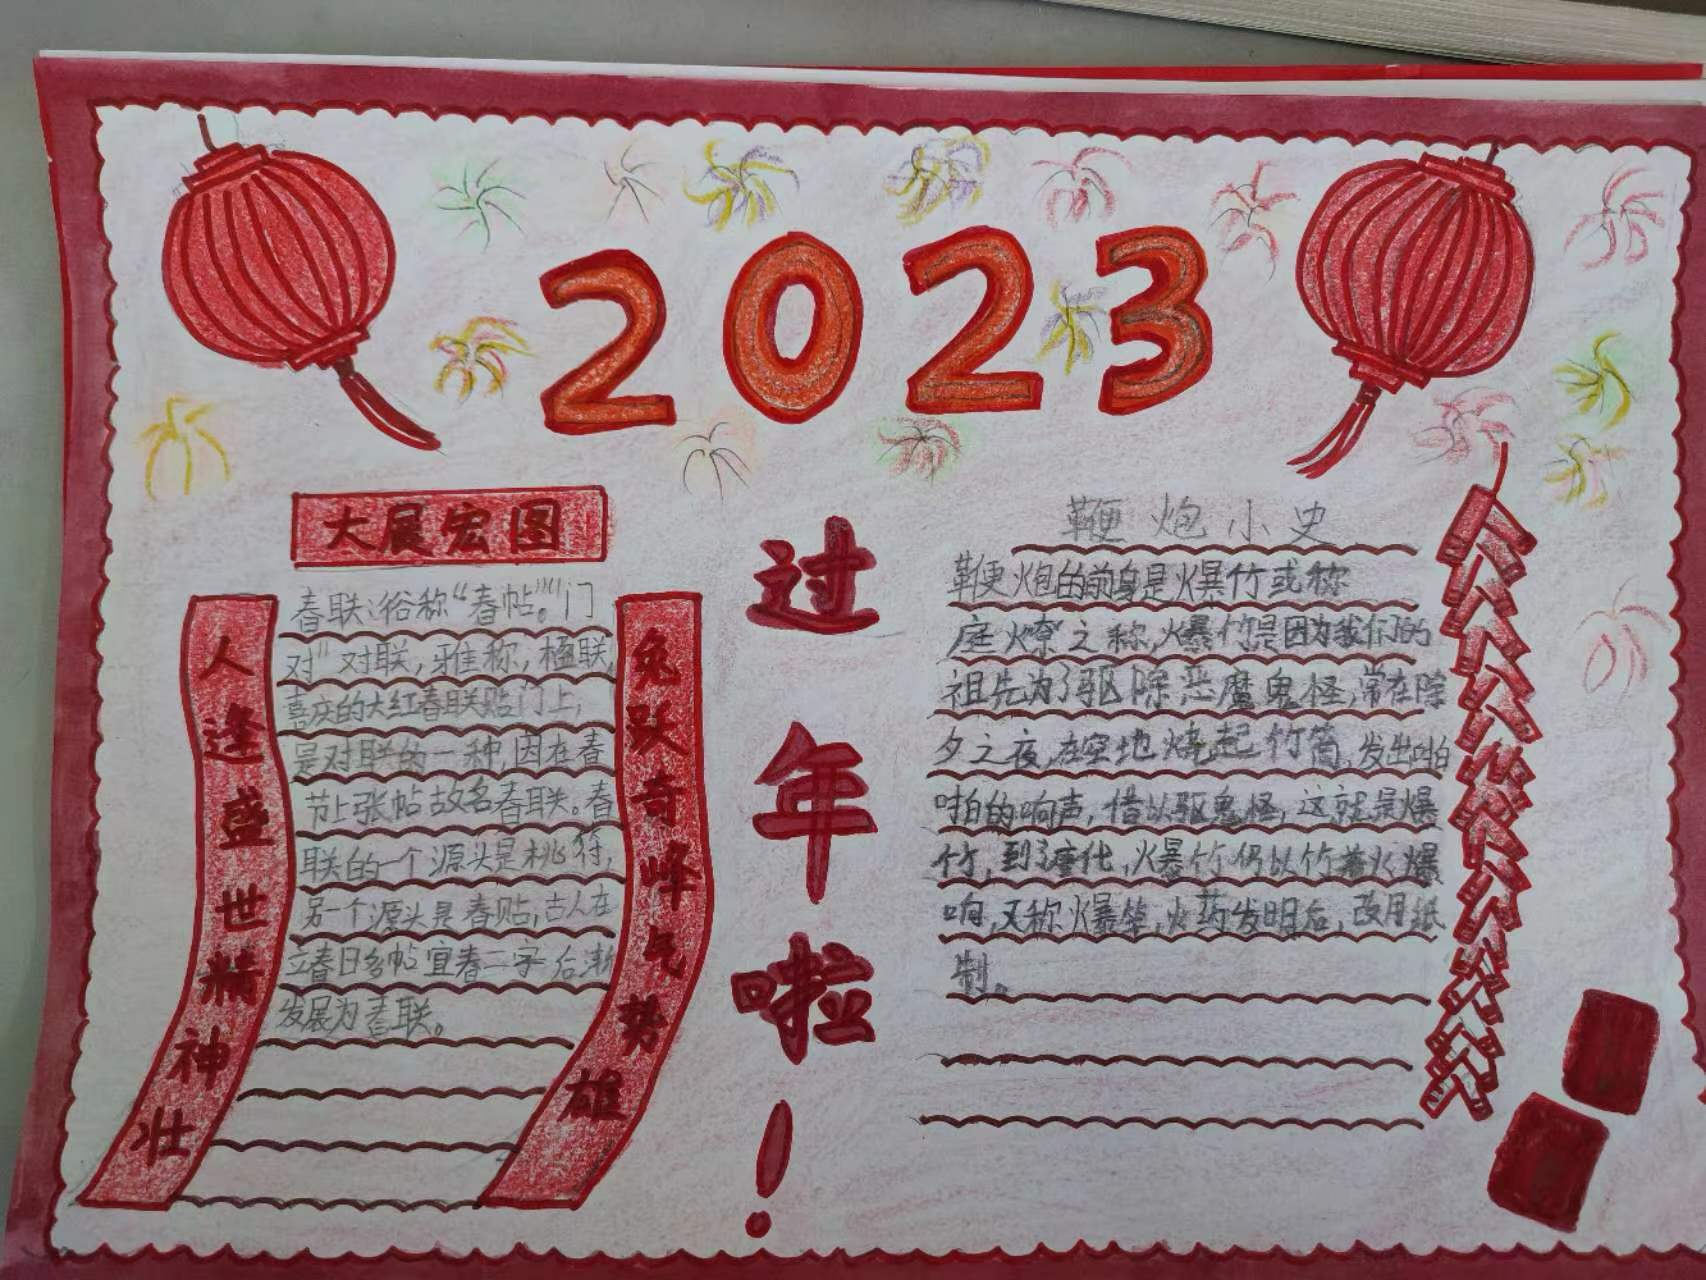 2023
大展宏图
人逢盛世精神壮
春联:俗称“春帖”“门
对”对联,雅称,楹联,
喜庆的大红春联贴门上,
是对联的一种,因在春
节上张帖故名春联。春
联的一个源头是桃符,
另一个源头是春贴,古人在
立春日多帖宜春二字后渐
发展为春联。
兔跃奇峰气势雄
过年啦!
鞭炮小史
鞭炮的前身是爆竹或称
庭燎”之称,爆竹是因为我们的
祖先为了驱除恶魔鬼怪,常在除
夕之夜,在空地烧起竹筒,发出啪
啪的响声,借以驱鬼怪,这就是爆
竹,到了唐代,爆竹仍以竹着火爆
响,又称爆竿,火药发明后,改用纸
制。